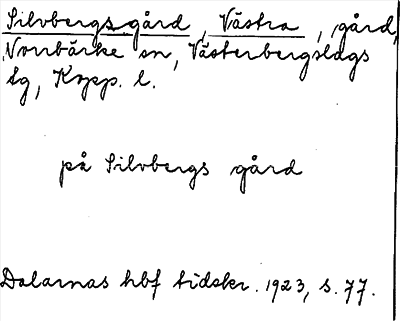 Silvbergsgård, Västra, gård,
Norrbärke sn, Västerbergslags
tg, Kopp. l.
på Silvbergs gård
Dalarnas hbf tidskr. 1923, s. 77.